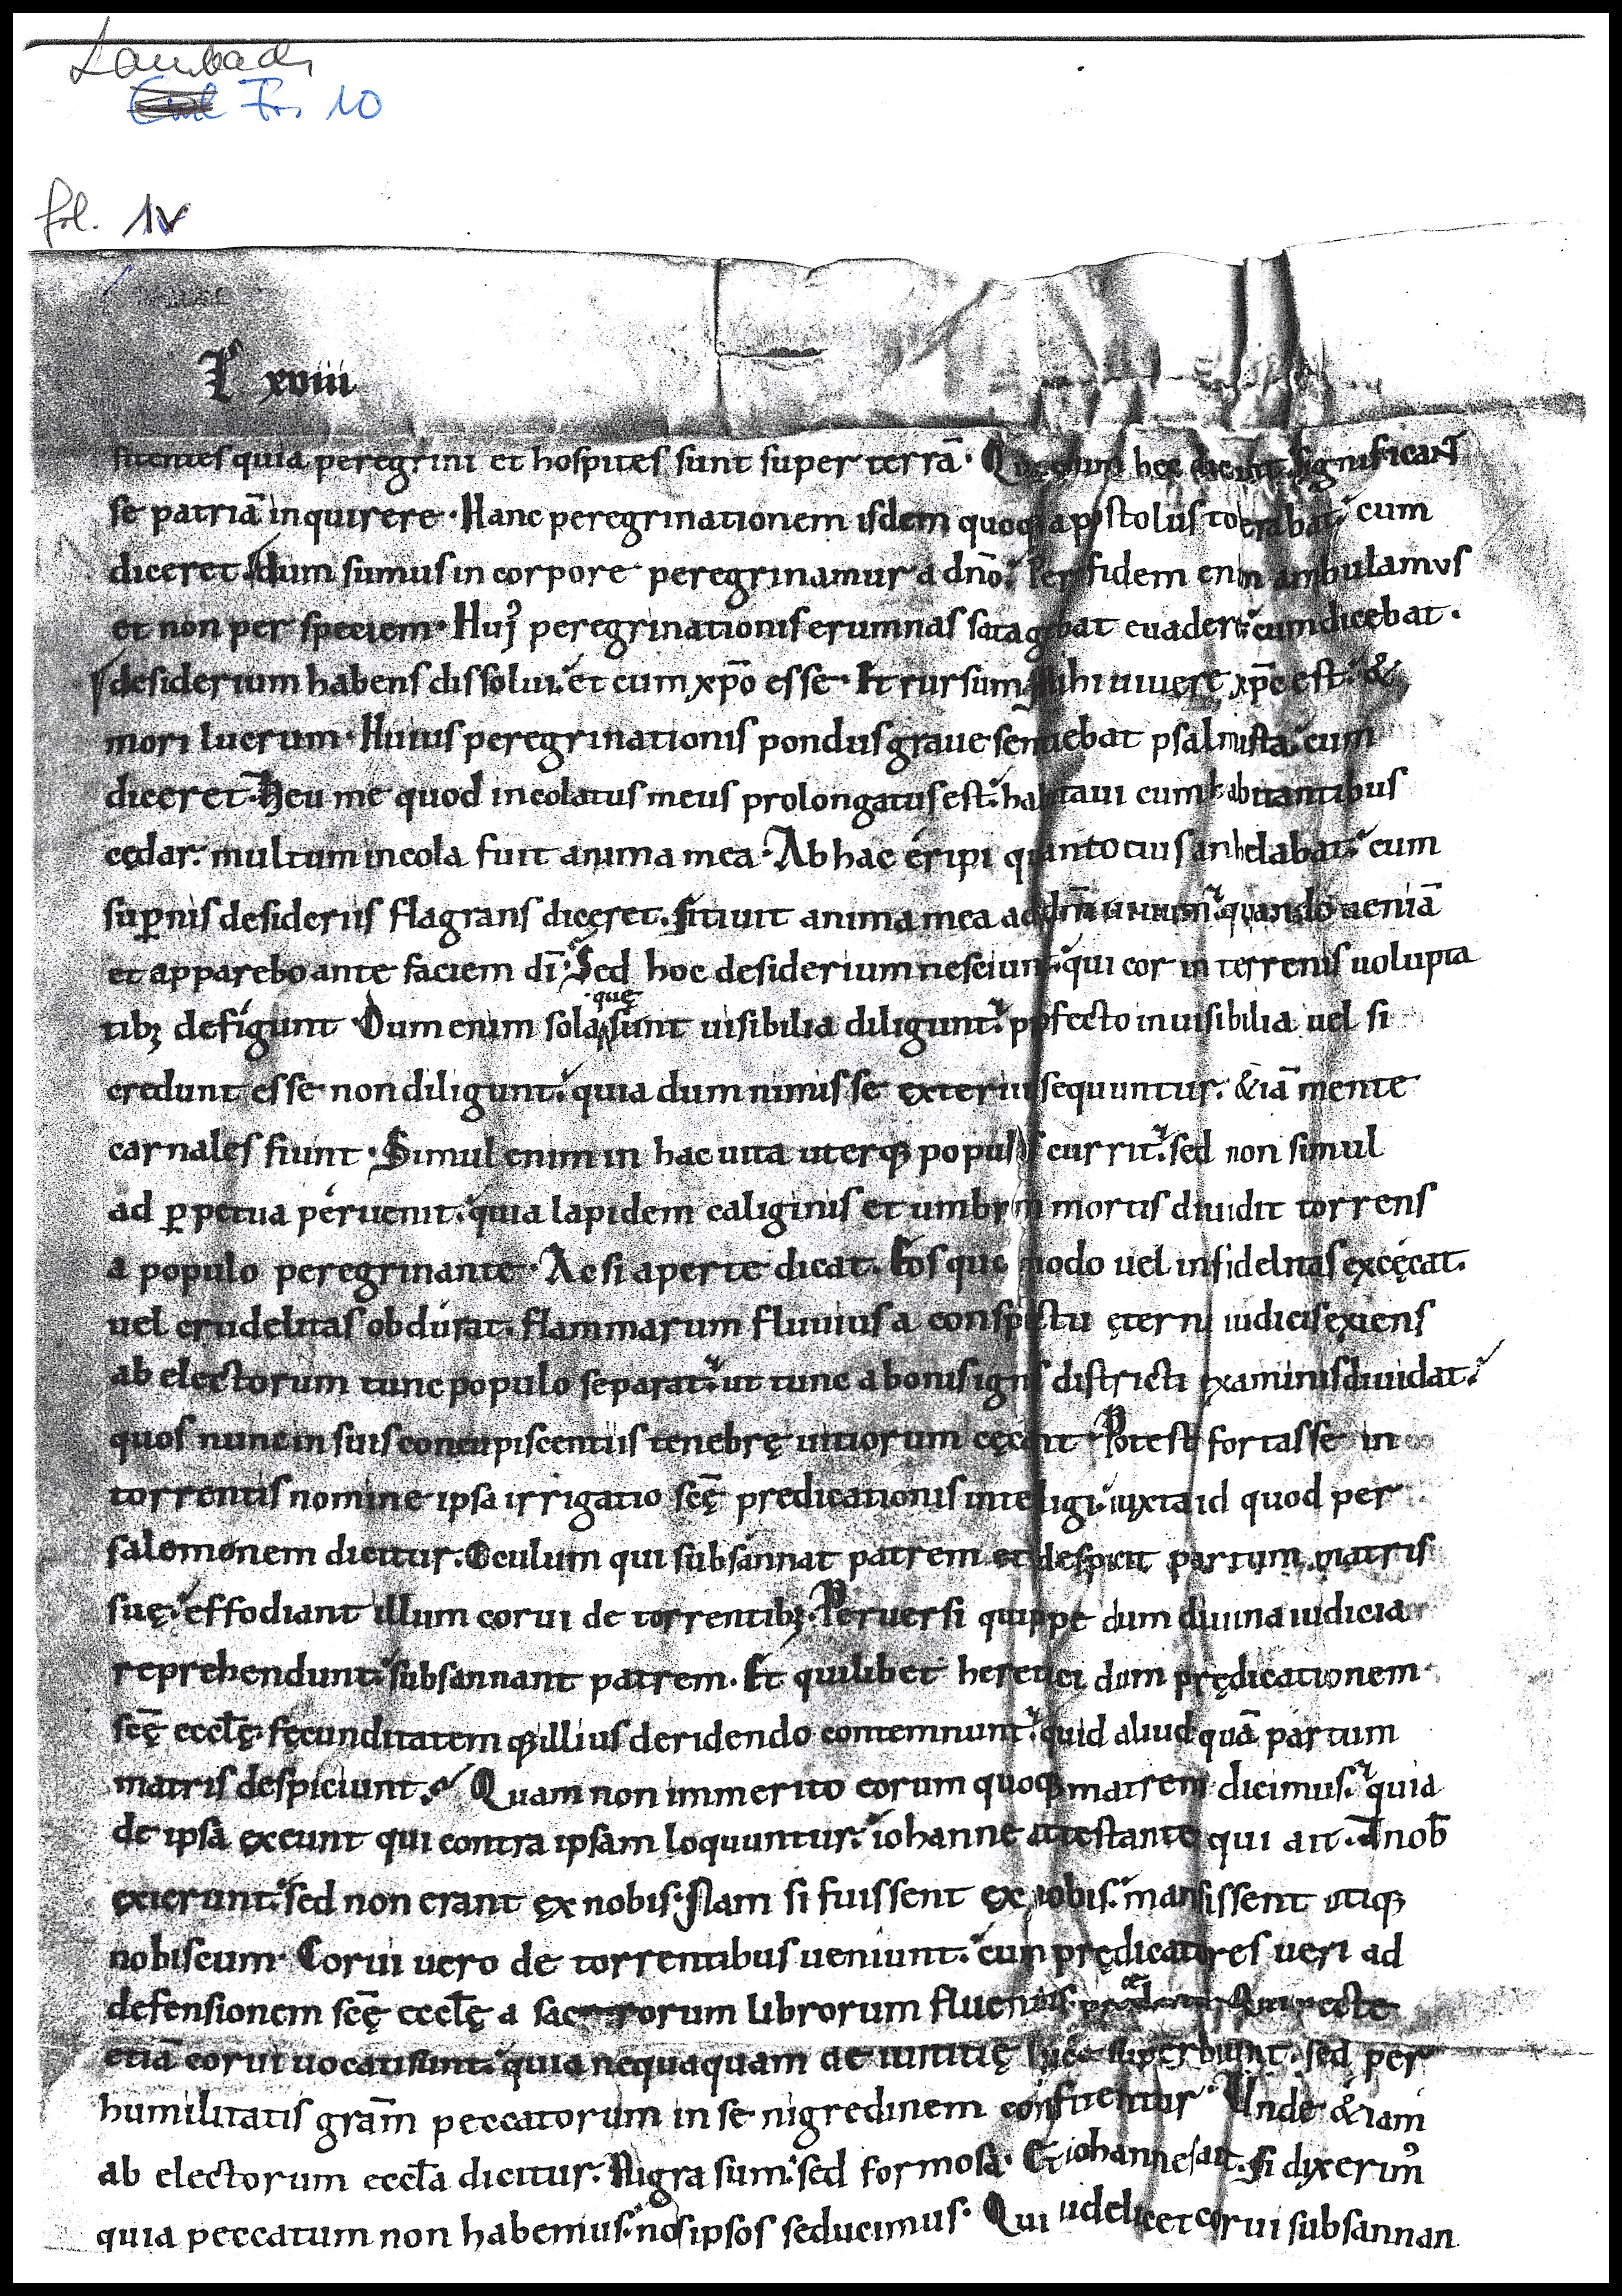 Lambach
Fr. 10
fol. 1v
L xviii
fitentes quia peregrini et hospites sunt super terrā. Qui enim hec dicunt. significant
se patriā inquirere. Hanc peregrinationem isdem quoq; apostolus tolerabat. cum
diceret. dum sumus in corpore peregrinamur a dn̄o. Per fidem enim ambulamus
et non per speciem. Huiꝰ peregrinationis erumnas satagebat euadere. cum dicebat.
desiderium habens dissolui. et cum xp̄o esse. Et rursum. mihi uiuere xp̄c est. &
mori lucrum. Huius peregrinationis pondus graue sentiebat psalmista. cum
diceret. Heu me quod incolatus meus prolongatus est. habitaui cum habitantibus
cędar. multum incola fuit anima mea. Ab hac eripi quantocius anhelabat. cum
suꝑnis desideriis flagrans diceret. sitiuit anima mea ad dm̄ uiuum. quando ueniā
et apparebo ante faciem dī. Sed hoc desiderium nesciunt. qui cor in terrenis uolupta
tibꝫ defigunt. Dum enim sola que sunt uisibilia diligunt. ꝓfecto inuisibilia uel si
credunt esse non diligunt. quia dum nimis se exterius sequuntur. &iā mente
carnales fiunt. Simul enim in hac uita uterq; populus currit. sed non simul
ad ꝑpetua peruenit. quia lapidem caliginis et umbram mortis diuidit torrens
a populo peregrinante. Ac si aperte dicat. Eos quos modo uel infidelitas excęcat.
uel crudelitas obdurat. flammarum fluuius a conspectu ęterni iudicis exiens
ab electorum tunc populo separat. ut tunc a bonis ignis districti examinis diuidat.
quos nunc in suis concupiscentiis tenebrę uitiorum cęcant. Potest fortasse in
torrentis nomine ipsa irrigatio scę̄ predicationis intelligi. iuxta id quod per
salomonem dicitur. Oculum qui subsannat patrem et despicit partum matris
suę. effodiant illum corui de torrentibꝫ. Peruersi quippe dum diuina iudicia
reprehendunt. subsannant patrem. Et quilibet heretici dum prędicationem
scę̄ eccl̄ę. fecunditatem q; illius deridendo contemnunt. quid aliud quā partum
matris despiciunt. Quam non immerito eorum quoq; matrem dicimus. quia
de ipsa exeunt qui contra ipsam loquuntur. iohanne attestante qui ait. A nob̄
exierunt. sed non erant ex nobis. Nam si fuissent ex nobis. mansissent utiq;
nobiscum. Corui uero de torrentibus ueniunt. cum prędicatores ueri ad
defensionem scę̄ eccl̄ę a sacrorum librorum fluentis Qui recte
etiā corui uocati sunt. quia nequaquam de iustitię luce superbiunt. sed per
humilitatis gram̄ peccatorum in se nigredinem confitentur. Unde &iam
ab electorum eccl̄a dicitur. Nigra sum. sed formosa. Et iohannes ait. Si dixerimꝰ
quia peccatum non habemus. nos ipsos seducimus. Qui uidelicet corui subsannan